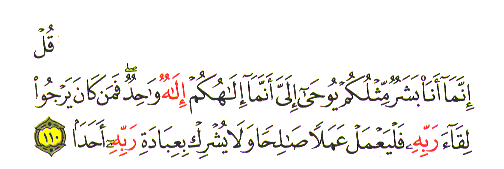 قُلْ
إِنَّمَآ أَنَا۠ بَشَرٌ مِّثْلُكُمْ يُوحَىٰٓ إِلَىَّ أَنَّمَآ إِلَـٰهُكُمْ إِلَـٰهٌ وَٰحِدٌ ۖ فَمَن كَانَ يَرْجُوا۟
لِقَآءَ رَبِّهِۦ فَلْيَعْمَلْ عَمَلًا صَـٰلِحًا وَلَا يُشْرِكْ بِعِبَادَةِ رَبِّهِۦٓ أَحَدًۢا ١١٠